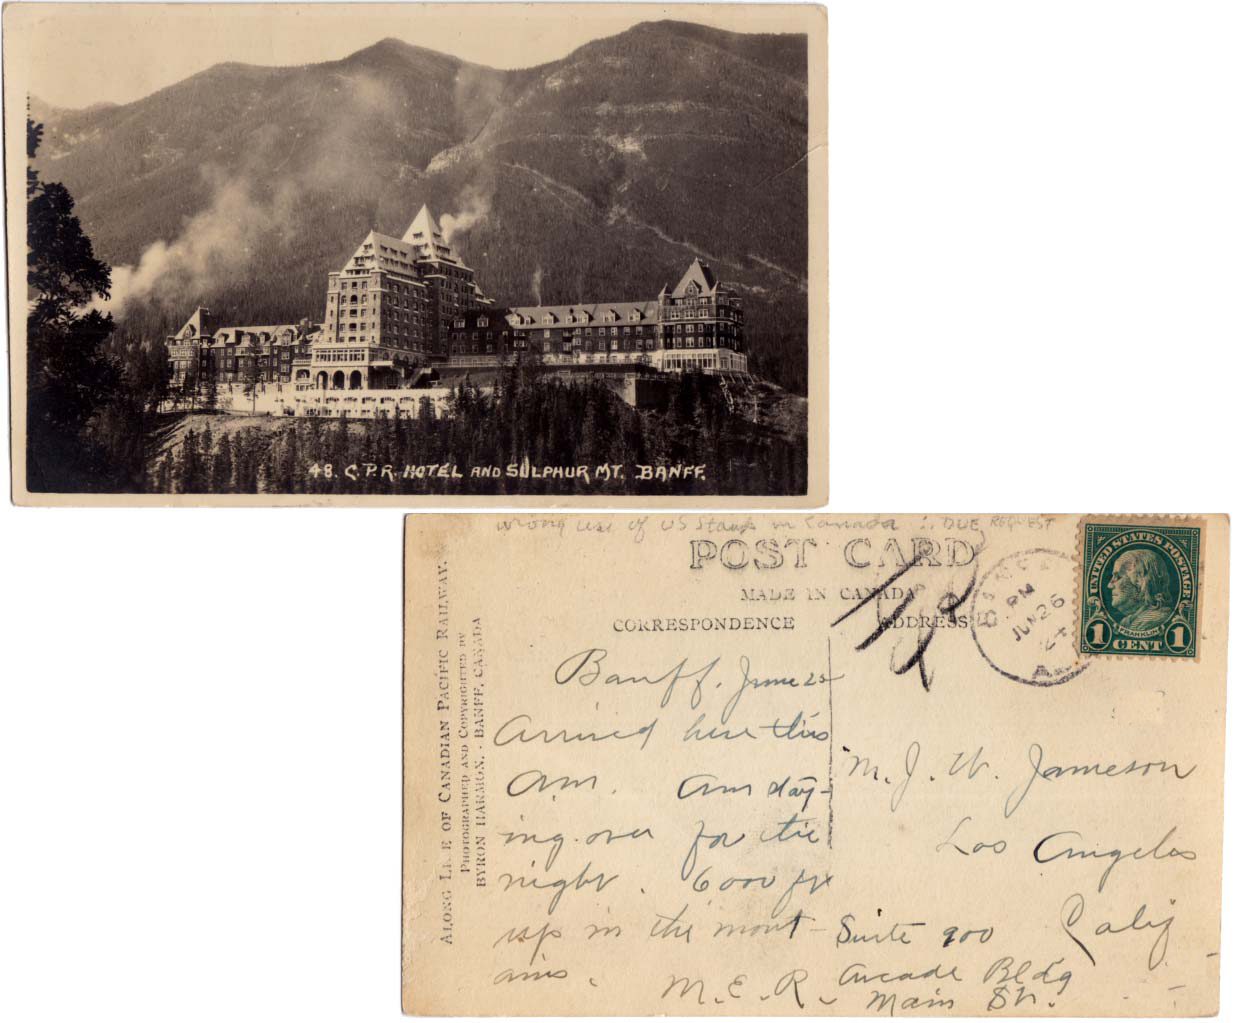 48. C.P.R. HOTEL AND SULPHUR MT. BANFF.
wrong use of US Stamp in Canada ∴ DUE REQUEST
POST CARD
MADE IN CANADA
CORRESPONDENCE
ADDRESS
ALONG LINE OF CANADIAN PACIFIC RAILWAY.
PHOTOGRAPHED AND COPYRIGHTED BY
BYRON HARMON. - BANFF, CANADA
PM
JUN 26
UNITED STATES POSTAGE
FRANKLIN
1 CENT 1
Banff. June 25
Arrived here this
a.m. Am stay-
ing over for the
night. 6000 ft
up in the mont-
ains.
M. E. R.
M. J. W. Jameson
Los Angelos
Calif
Suite 900
Arcade Bldg
Main St.